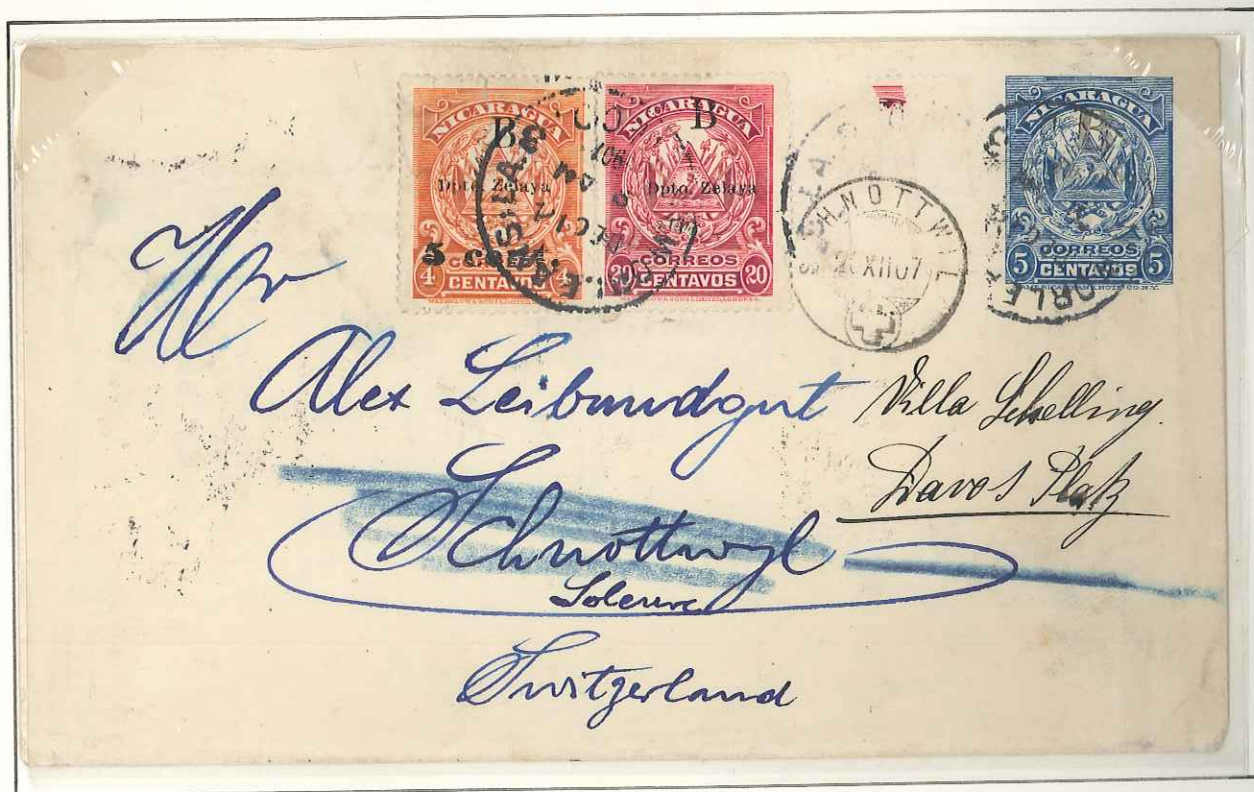 NICARAGUA
B
Dpto. Zelaya
5 cent
4
CENTAVOS
NICARAGUA
B
Dpto. Zelaya
CORREOS
20 CENTAVOS 20
NICARAGUA
B
CORREOS
5 CENTAVOS 5
SCHNOTTWIL
XII07
Hr
Alex Leibundgut
Villa Schelling.
Davos Platz
Schnottwyl
Soleure
Switzerland